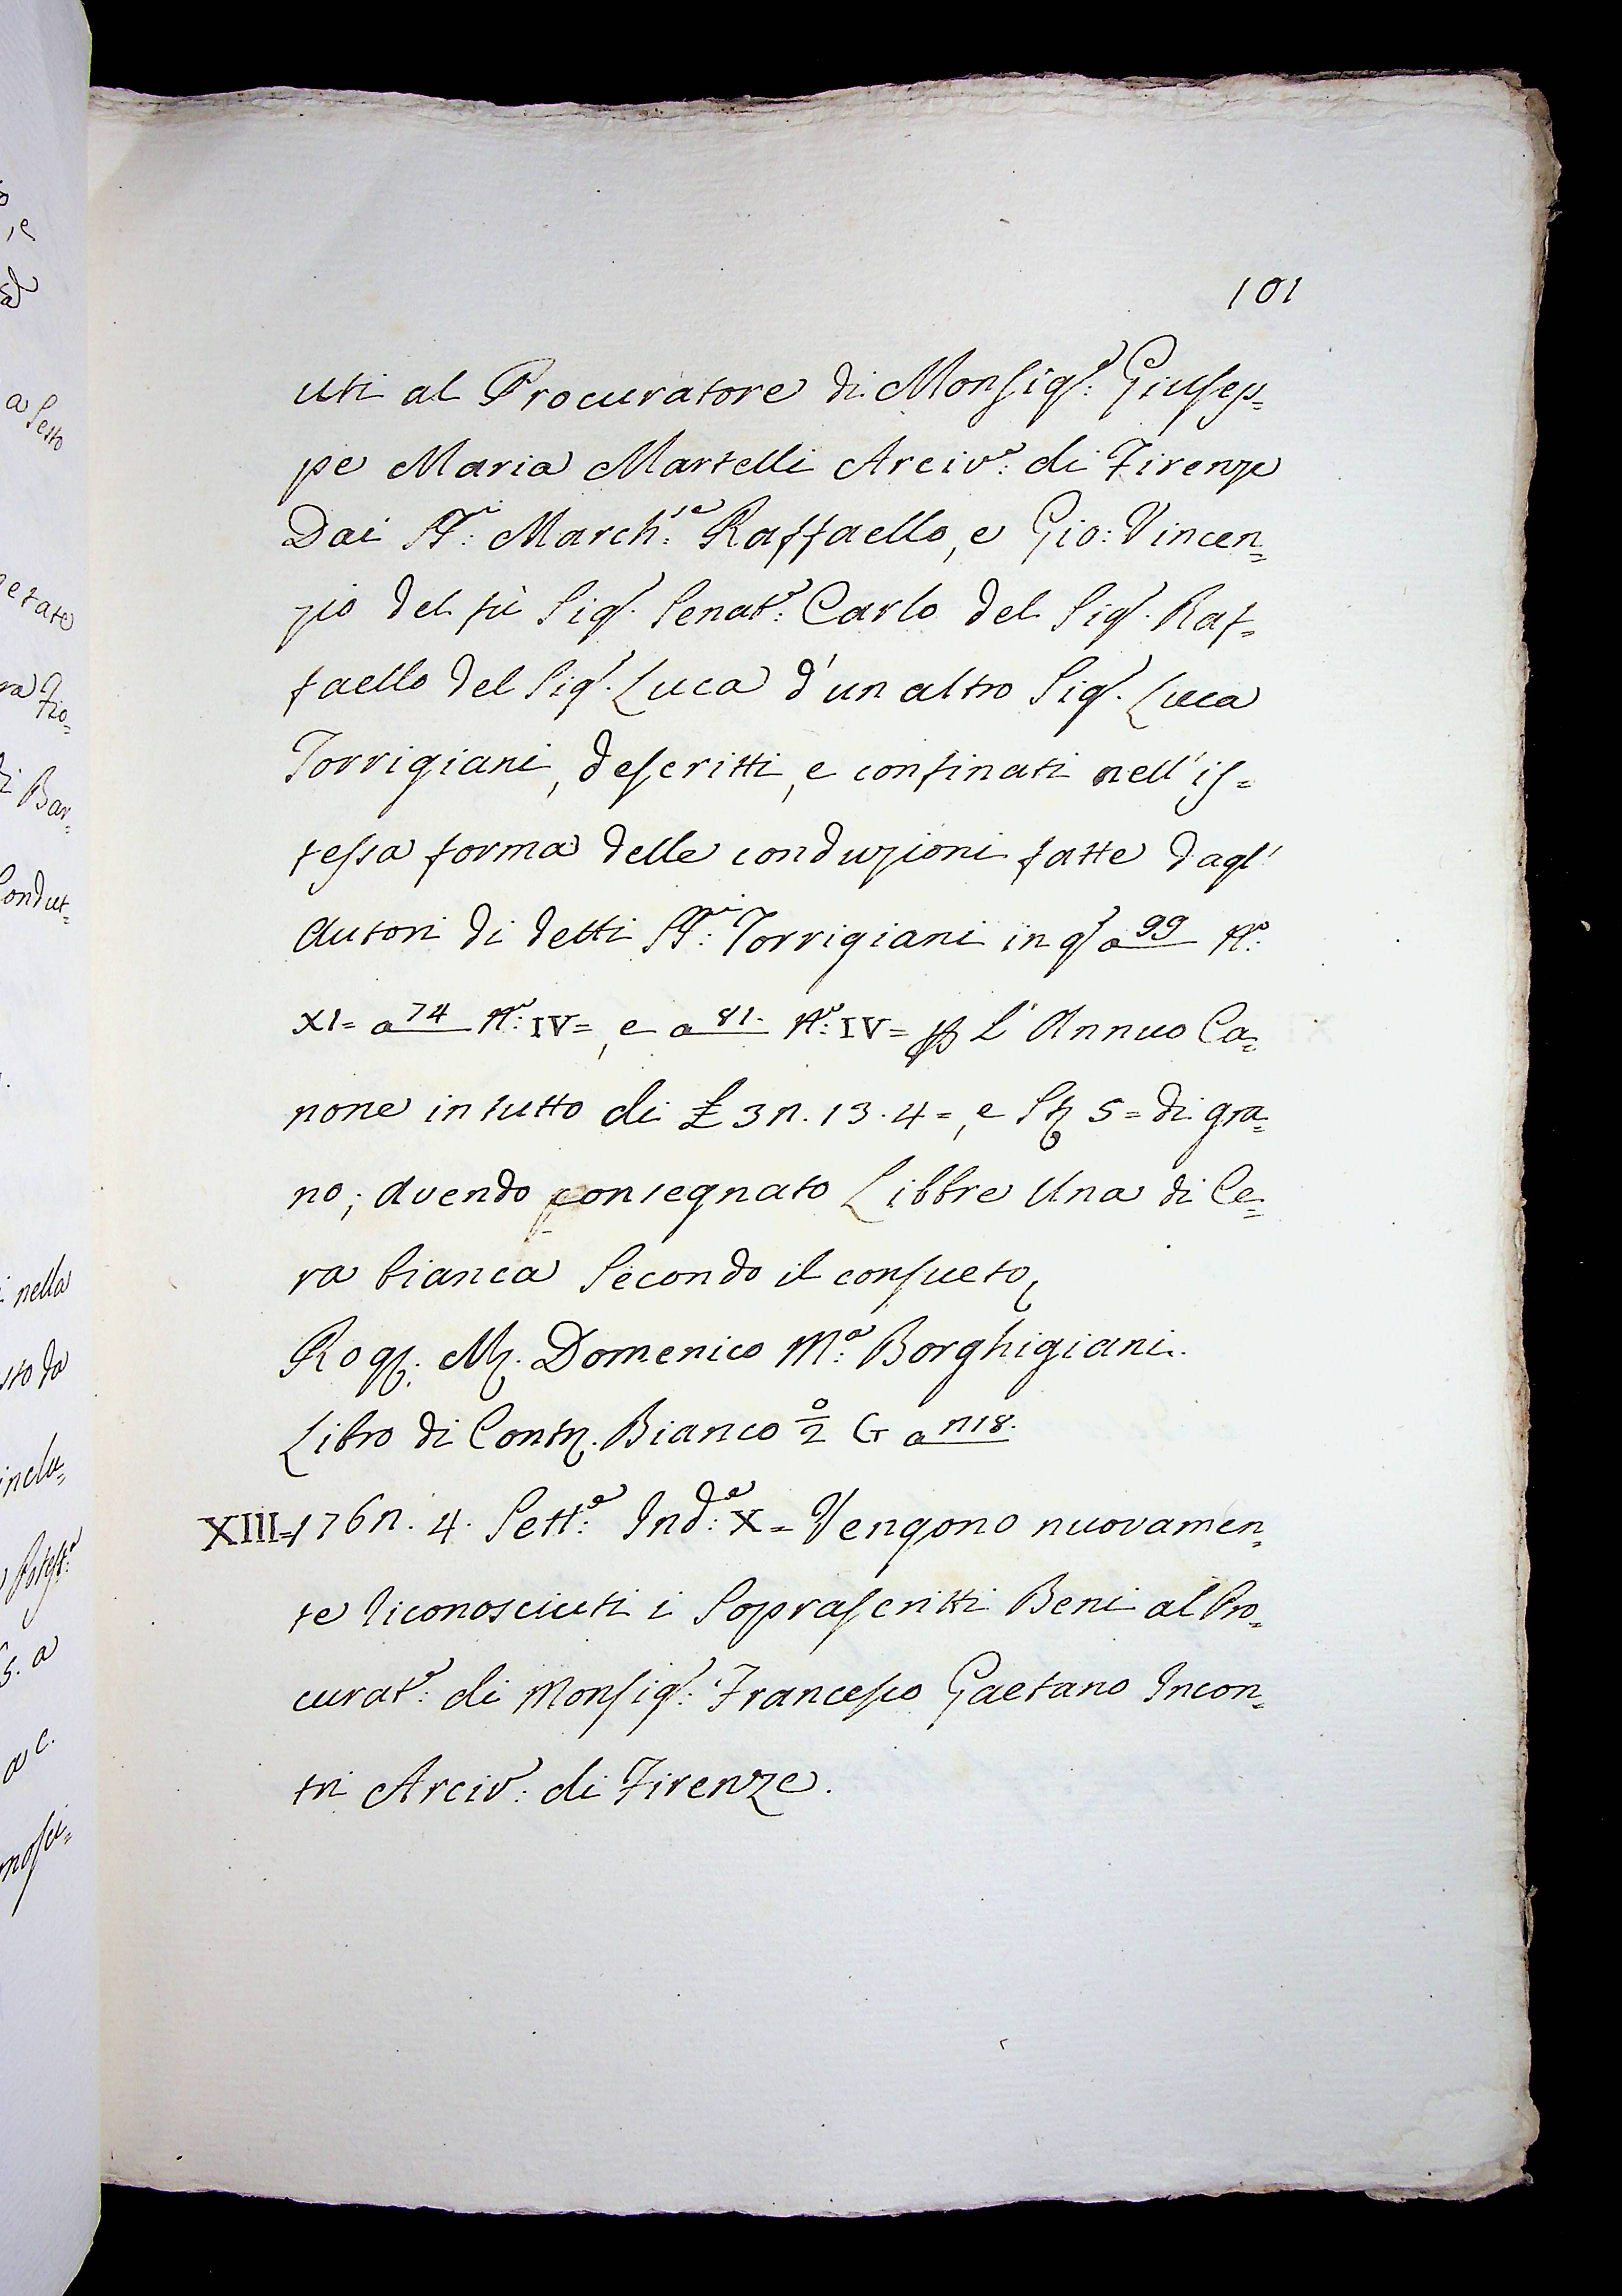 101
uti al Procuratore di Monsig.r Giusep=
pe Maria Martelli Arciv.o di Firenze
Dai SS.ri March.si Raffaello, e Gio: Vincen=
zio del fù Sig.r Senat.e Carlo del Sig.r Raf=
faello del Sig.r Luca d'un altro Sig.r Luca
Torrigiani, descritti, e confinati nell'is=
tessa forma delle conduzioni fatte dagl'
Autori di detti SS.ri Torrigiani in q.o a 99 N.o
XI= a 74 N.o IV=, e a 81. N.o IV= p L'Annuo Ca=
none in tutto di £ 32. 13. 4=, e St 5= di gra=
no; avendo consegnato Libbre Una di Ce=
ra bianca Secondo il consueto,
Rog. M. Domenico M.a Borghigiani.
Libro di Contr. Bianco o/2 G a 218.
XIII=1762. 4. Sett.e Ind.e X= Vengono nuovamen=
te riconosciuti i Soprascritti Beni al Pro=
curat.e di Monsig.r Francesco Gaetano Incon=
tri Arciv.o di Firenze.